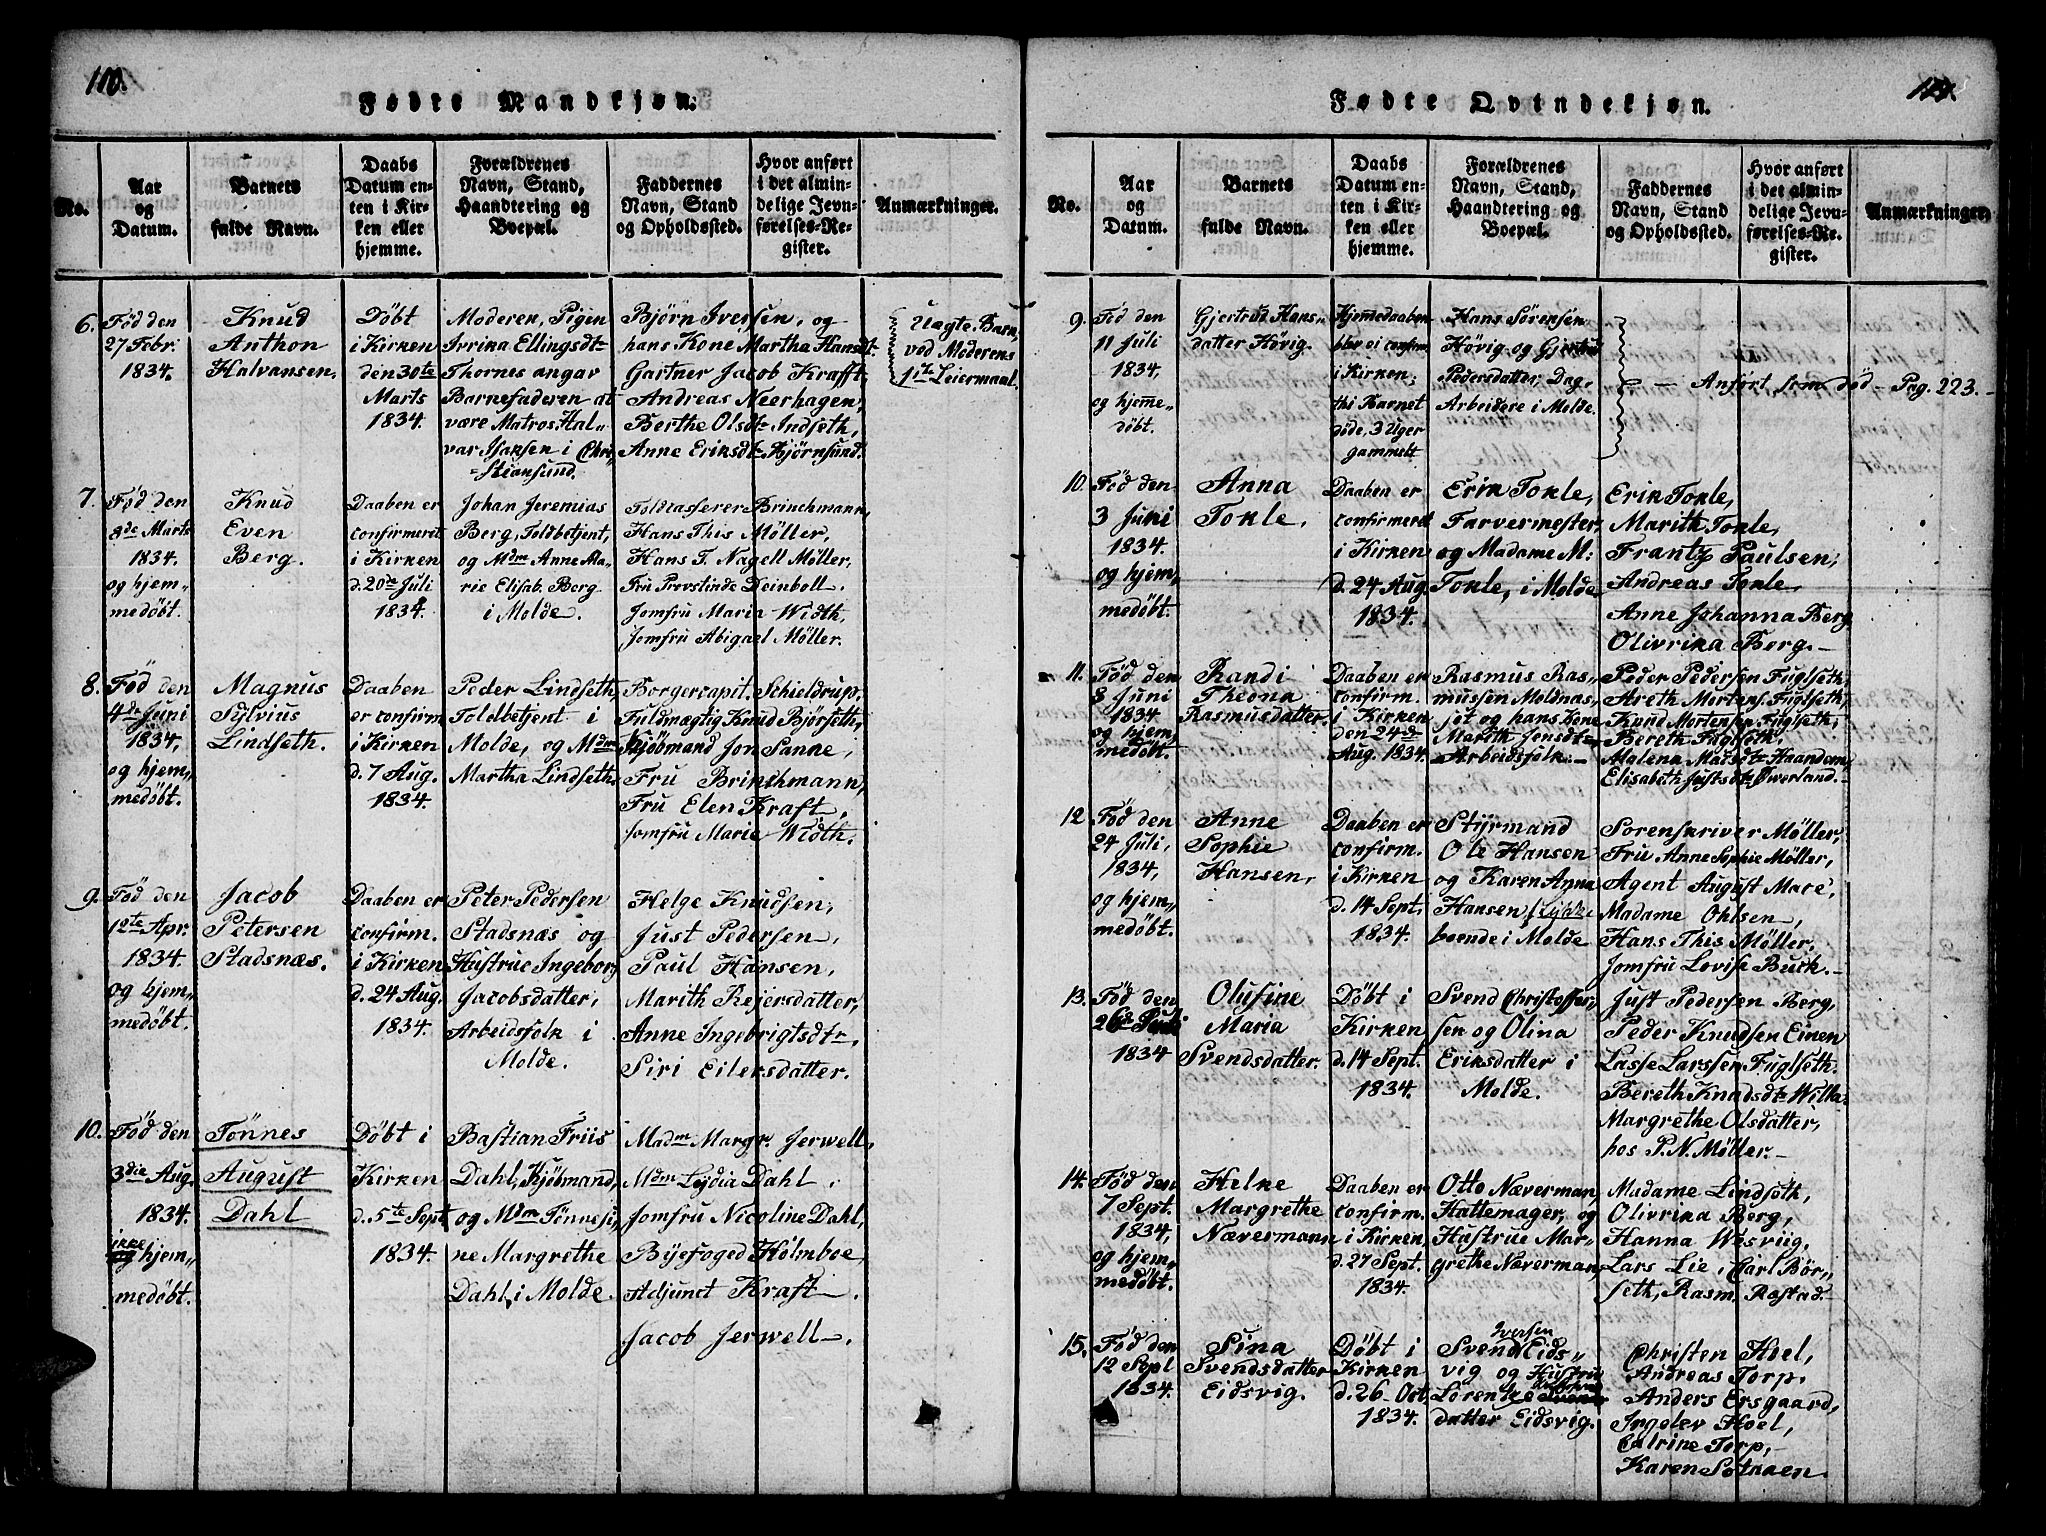 110.
Fødte Mandkjøn.
No.
Aar
og
Datum.
Barnets
fulde Navn.
Daabs
Datum en-
ten i Kir-
ken eller
hjemme.
Forældrenes
Navn, Stand,
Haandtering og
Boepæl.
Faddernes
Navn, Stand
og Opholdssted.
Hvor anført
i det almin-
delige Jevn-
førelses-Re-
gister.
Anmærkninger.
6.
Fød den
27 Febr:
1834.
Knud
Anthon
Halvansen.
Døbt
i Kirken
den 30te
Marts
1834.
Moderen, Pigen
Ivrika Ellingsdtr
Thornes angav
Barnefaderen at
være Matros Hal„
var Isaksen i Chri„
stiansund.
Bjørn Iversen, og
hans Kone Martha Hansdt.
Gartner Jacob Krafft,
Andreas Neerhagen,
Berthe Olsdtr Indseth,
Anne Eriksdtr Bjørnsund.
Uægte Barn,
ved Moderens
1ste Leiermaal.
7.
Fød den
8de Marts
1834.
og hjem„
medøbt.
Knud
Even
Berg.
Daaben er
confirmeret
i Kirken
d. 20de Juli
1834.
Johan Jeremias
Berg, Toldbetjent,
og Mdm Anne Ma„
rie Elisab. Berg
i Molde.
Toldcasserer Brinchmann,
Hans This Møller,
Hans T. Nagell Møller,
Fru Provstinde Deinboll.
Jomfru Maria Width,
Jomfru Abigael Møller.
8.
Fød den
4de Juni
1834,
og hjem„
medøbt.
Magnus
Sylvius
Lindseth.
Daaben
er confirm.
i Kirken
d. 7 Aug.
1834.
Peder Lindseth,
Toldbetjent i
Molde, og Mdm
Martha Lindseth.
Borgercapit. Schieldrup,
Fuldmægtig Knud Bjørseth,
Kjøbmand Jon Sanne,
Fru Brinchmann,
Fru Elen Kraft,
Jomfru Marie Width.
9.
Fød den
12te Apr.
1834.
og hjem„
medøbt.
Jacob
Petersen
Stadsnæs.
Daaben er
confirm.
i Kirken
d. 24 Aug.
1834.
Peter Pedersen
Stadsnæs og
Hustrue Ingeborg
Jacobsdatter,
Arbeidsfolk i
Molde.
Helge Knudsen,
Just Pedersen,
Paul Hansen,
Marith Rejersdatter,
Anne Ingebrigtsdtr,
Siri Eilersdatter.
10.
Fød den
3die Aug.
1834.
ikke
og hjem„
medøbt.
Tønnes
August
Dahl
Døbt i
Kirken
d. 5te Sept.
1834.
Bastian Friis
Dahl, Kjøbmand,
og Mdm Tønnesi„
ne Margrethe
Dahl, i Molde.
Madm Margr. Jerwell,
Mdm Lydia Dahl,
Jomfru Nicoline Dahl,
Byefoged Holmboe,
Adjunct Kraft.
Jacob Jerwell.
Fødte Qvindekjøn.
No.
Aar
og
Datum.
Barnets
fulde Navn.
Daabs
Datum en-
ten i Kir-
ken eller
hjemme.
Forældrenes
Navn, Stand,
Haandtering og
Boepæl.
Faddernes
Navn, Stand
og Opholdssted.
Hvor anført
i det almin-
delige Jevn-
førelses-Re-
gister.
Anmærkninger.
9.
Fød den
11 Juli
1834,
og hjemme„
døbt.
Gjertrud Hans„
datter Høvig.
Hjemmedaaben
blev ei confirm.
i Kirken,
thi Barnet
døde, 3 Uger
gammelt
Hans Sørensen
Høvig og Gjertrud
Pedersdatter, Dag„
Arbeidere i Molde.
Anført som død — Pag. 223.
10.
Fød den
3 Juni
1834.
og hjem„
medøbt.
Anna
Tokle.
Daaben er
confirmeret
i Kirken
d. 24 Aug.
1834.
Erik Tokle,
Farvermester,
og Madame M:
Tokle, i Molde
Erik Tokle,
Marith Tokle,
Frantz Paulsen,
Andreas Tokle,
Anne Johanna Berg
Olivrika Berg.
11.
Fød den
8 Juni
1834
og hjem„
medøbt.
Randi
Theona
Rasmusdatter.
Daaben er
confirm.
i Kirken
den 24de
Aug. 1834.
Rasmus Ras„
mussen Moldnæs„
jet og hans Kone
Marith Jensdtr,
Arbeidsfolk.
Peder Pedersen Fuglseth,
Areth Mortens. Fuglseth,
Knud Mortensen Fuglseth,
Bereth Fuglseth,
Malena Matsdtr Haandem,
Elisabeth Justsdtr Øwerland.
12
Fød den
24 Juli,
1834,
og hjem„
medøbt.
Anne
Sophie
Hansen.
Daaben er
confirm.
i Kirken
d. 14 Sept.
1834.
Styrmand
Ole Hansen
og Karen Anna
Hansen
boende i Molde
Sorenskriver Møller,
Fru Anne Sophie Møller,
Agent August Mare,
Madame Ohlsen,
Hans This Møller,
Jomfru Lovise Buck.
13.
Fød den
1834
Olufine
Maria
Svendsdatter.
Døbt i
Kirken
d. 14 Sept.
1834.
Svend Christoffer„
sen og Olina
Eriksdatter i
Molde.
Just Pedersen Berg,
Peder Knudsen Einen
Lasse Larssen Fuglseth.
Bereth Knudsdtr
Margrethe Olsdatter,
hos P. N. Møller.
14.
Fød den
7 Sept.
1834,
og hjem„
medøbt.
Helke
Margrethe
Nævermann
Daaben er
confirm.
i Kirken
d. 27 Sept.
1834.
Otto Næverman,
Hattemager, og
Hustrue Mar„
grethe Næverman,
Madame Lindseth,
Olivrika Berg,
Hanna Wesviig,
Lars Lie, Carl Bør„
seth, Rasm. Rostad.
15.
Fød den
12 Sept
1834.
Sina
Svendsdatter
Eidsvig.
Døbt i
Kirken
d. 26 Oct.
1834.
Iversen
Svend Eids„
vig og Hustrue
Lorentze
datter Eidsvig.
Christen Hoel,
Andreas Torp,
Anders Ersgaard,
Ingelev Hoel,
Catrine Torp,
Karen Sotnaen.